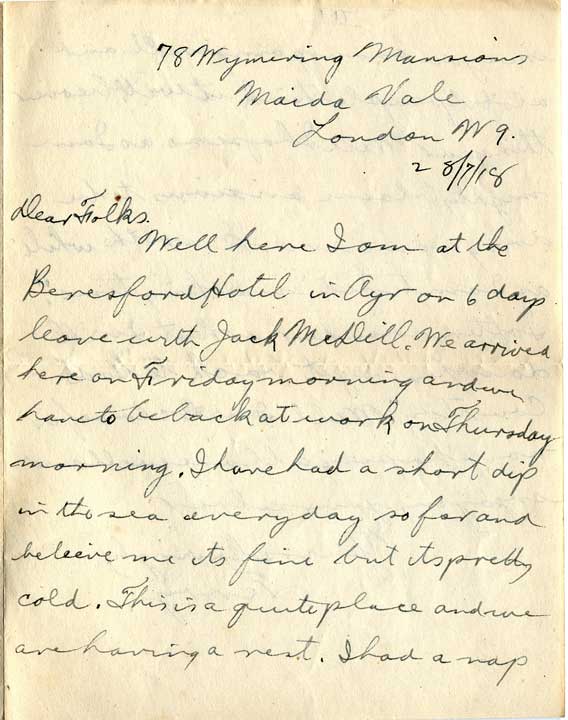 78 Wymering Mansions
Maida Vale
London W9.
28/7/18
Dear Folks.
Well here I am at the
Beresford Hotel in Ayr on 6 days
leave with Jack McDill. We arrived
here on Friday morning and we
have to be back at work on Thursday
morning. I have had a short dip
in the sea everyday so far and
beleeve me its fine but its pretty
cold. This is a quite place and we
are having a rest. I had a nap